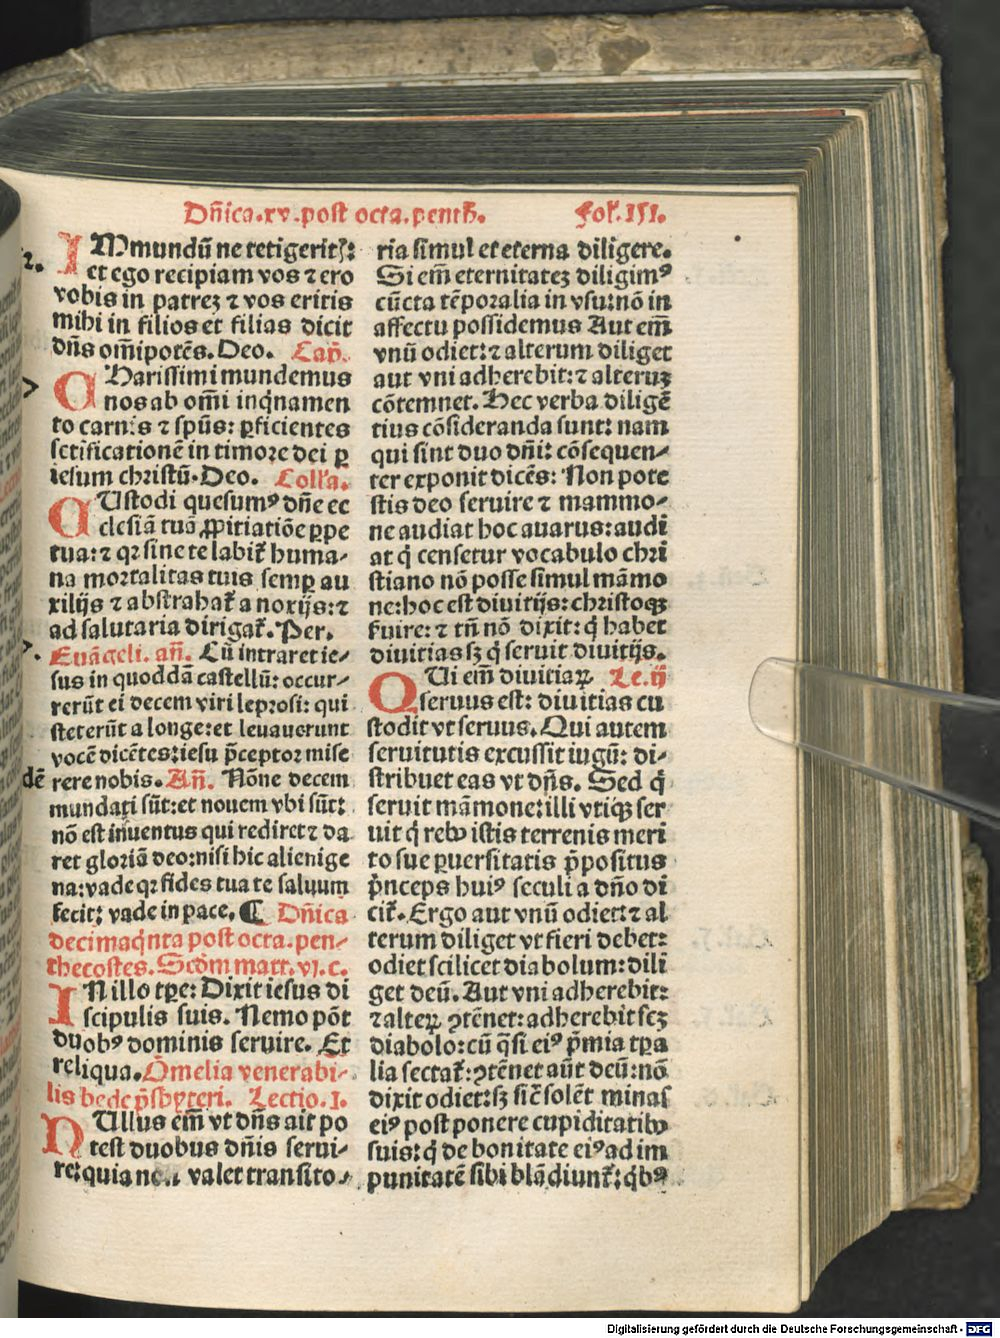 Dñica.xv.post octa.penth̄. Fol̕.151.
IMmundū ne tetigeritꝭ:
et ego recipiam vos ⁊ ero
vobis in patreꝫ ⁊ vos eritis
mihi in filios et filias dicit
dñs om̄ipotēs. Deo. Cap̄.
CHarissimi mundemus
nos ab om̄i inq̇namen
to carnis ⁊ spūs: ꝑficientes
sctificationē in timore dei ꝑ
iesum christū. Deo. Coll̕a.
CUstodi quesumꝰ dñe ec
clesiā tuā ꝓpitiatiōe ꝑpe
tua: ⁊ qꝛ sine te labit̕ huma-
na mortalitas tuis semꝑ au
xilijs ⁊ abstrahat̕ a noxijs: ⁊
ad salutaria dirigat̕. Per.
Euāgeli. añ. Cū intraret ie-
sus in quoddā castellū: occur-
rerūt ei decem viri leprosi: qui
steterūt a longe: et leuauerunt
vocē dicētes: iesu p̄ceptor mise
rere nobis. Añ. Nōne decem
mundati sūt: et nouem vbi sūt:
nō est inuentus qui rediret ⁊ da
ret gloriā deo: nisi hic alienige
na: vade qꝛ fides tua te saluum
fecit: vade in pace. ¶ Dñica
decimaq̇nta post octa. pen-
thecostes. Scd̄m matt. vj. c.
IN illo tꝑe: Dixit iesus di
scipulis suis. Nemo pōt
duobꝰ dominis seruire. Et
reliqua. Omelia venerabi-
lis bede p̄sbyteri. Lectio. I.
NUllus em̄ vt dñs ait po
test duobus dñis serui-
re: quia non valet transito-
ria simul et eterna diligere.
Si em̄ eternitateꝫ diligimꝰ
cūcta tēporalia in vsu: nō in
affectu possidemus Aut em̄
vnū odiet: ⁊ alterum diliget
aut vni adherebit: ⁊ alteruꝫ
cōtemnet. Hec verba diligē
tius cōsideranda sunt: nam
qui sint duo dñi: cōsequen-
ter exponit dicēs: Non pote
stis deo seruire ⁊ mammo-
ne audiat hoc auarus: audi
at q̇ censetur vocabulo chri
stiano nō posse simul māmo
ne: hoc est diuitijs: christoqꝫ
ẜuire: ⁊ tñ nō dixit: q̇ habet
diuitias sꝫ q̇ seruit diuitijs.
QUi em̄ diuitiaꝝ Le.ij
seruus est: diuitias cu
stodit vt seruus. Qui autem
seruitutis excussit iugū: di-
stribuet eas vt dñs. Sed q̇
seruit māmone: illi vtiqꝫ ser
uit q̇ rebꝰ istis terrenis meri
to sue ꝑuersitatis p̄positus
p̄nceps huiꝰ seculi a dño di
cit̕. Ergo aut vnū odiet: ⁊ al
terum diliget vt fieri debet:
odiet scilicet diabolum: dili
get deū. Aut vni adherebit:
⁊ alteꝝ ꝯtēnet: adherebit scꝫ
diabolo: cū q̄si eiꝰ p̄mia tꝑa
lia sectat̕: ꝯtēnet aūt deū: nō
dixit odiet: sꝫ sic̄ solēt minas
eiꝰ post ponere cupiditatibꝰ
suis: q̇ de bonitate eiꝰ ad im
punitatē sibi blādiunt̕: q̇bꝰ
Digitalisierung gefördert durch die Deutsche Forschungsgemeinschaft - DFG